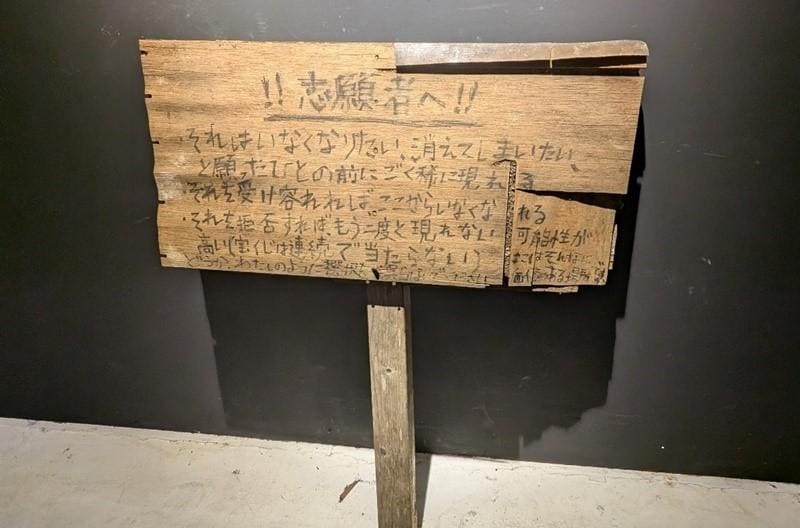 !!志願者へ!!
それはいなくなりたい、消えてしまいたい、
と願ったひとの前にごく稀に現れる
それを受け容れれば、ここからいなくなれる
それを拒否すればもう二度と現れない可能性が
高い(宝くじは連続で当たらない)